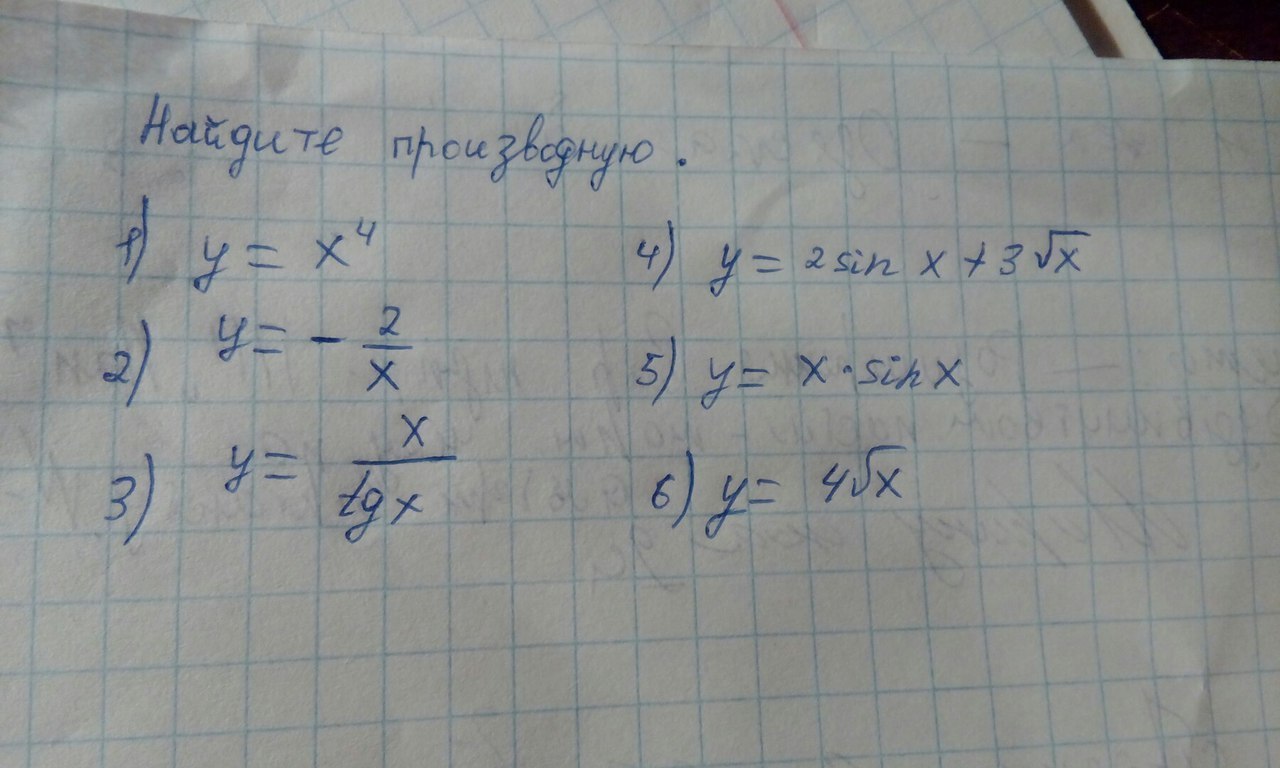 Найдите производную.
1) y = x⁴
2) y = - 2/x
3) y = x/tg x
4) y = 2 sin x + 3√x
5) y = x · sin x
6) y = 4√x